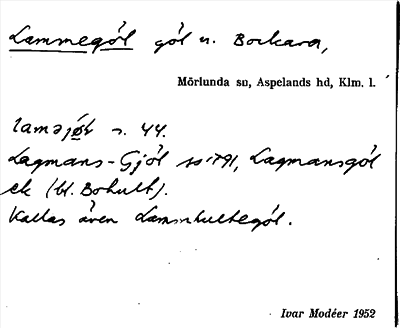 Lammegöl göl n. Bockara,
Mörlunda sn, Aspelands hd, Klm. l.
laməjö̀l s. 44.
Lagmans-Gjöl 1791, Lagmansgöl
ek (bl. Bohult).
Kallas även Lammhultegöl.
Ivar Modéer 1952